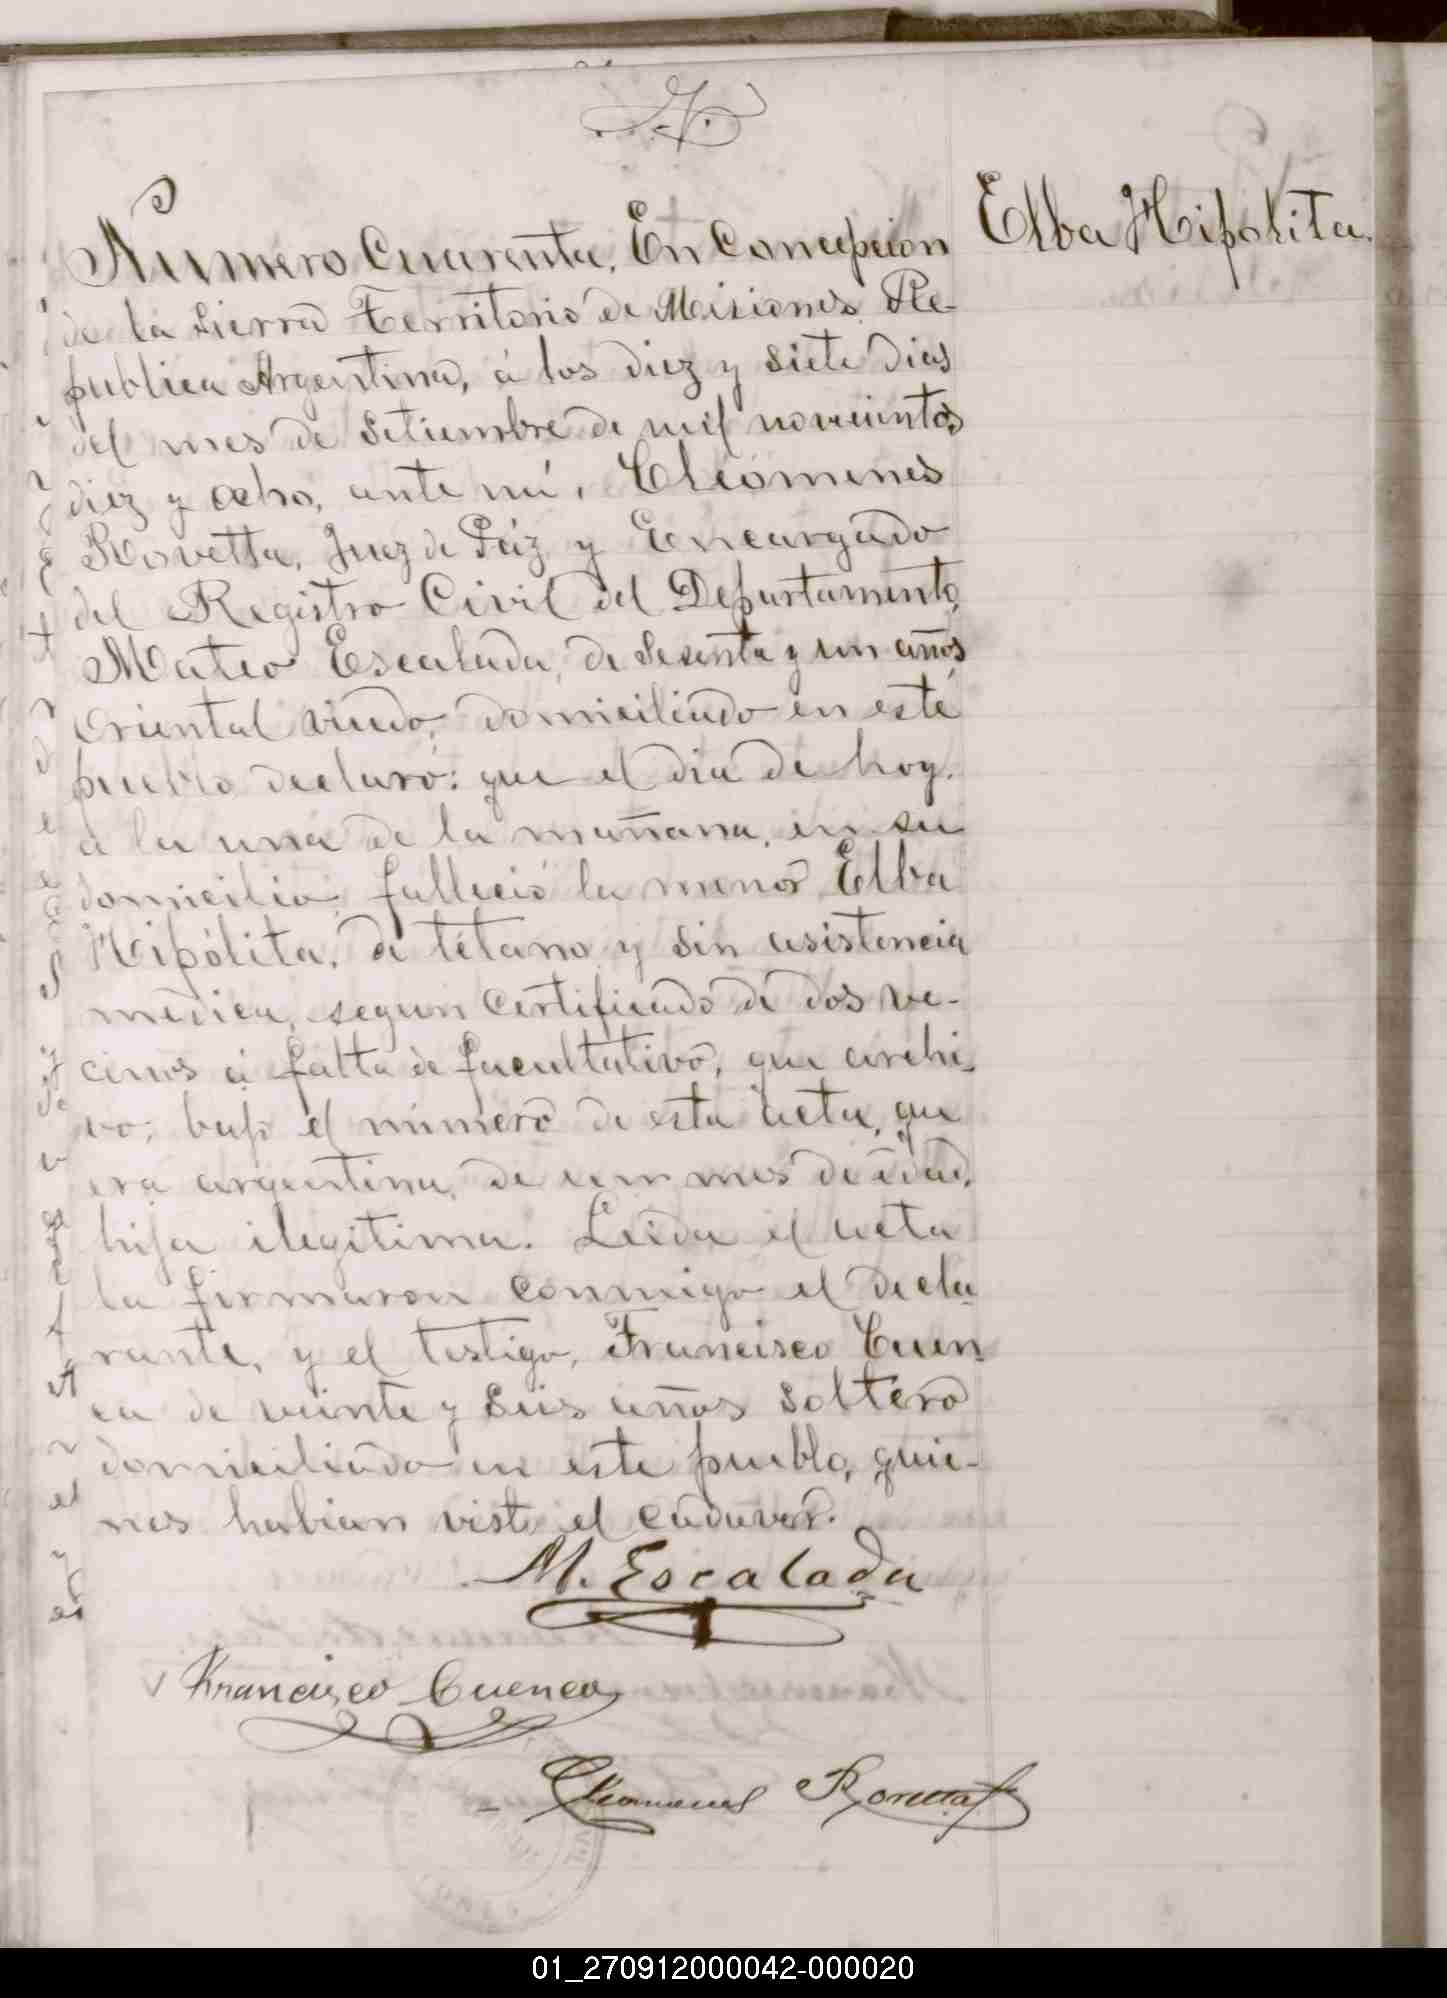 Elba Hipolita.
Número Cuarenta. En Concepcion
de la Sierra Territorio de Misiones Re-
publica Argentina, á los diez y siete dias
del mes de Setiembre de mil novecientos
diez y ocho, ante mí, Cleómenes
Rovetta, Juez de Páz y Encargado
del Registro Civil del Departamento,
Mateo Escalada, de sesenta y un años
oriental viudo, domiciliado en este
pueblo declaró: que el dia de hoy,
a la una de la mañana, en su
domicilio, falleció la menor Elba
Hipólita, de tétano y sin asistencia
medica, segun certificado de dos ve-
cinos á falta de facultativo, que archi-
vo; bajo el número de esta acta, que
era argentina, de un mes de edad,
hija ilegitima. Leida el acta
la firmaron conmigo el decla-
rante, y el testigo, Francisco Cuen-
ca de veinte y seis años soltero
domiciliado en este pueblo, quie-
nes habian visto el cadaver.
M. Escalada
Francisco Cuenca
Cleomenes Rovetta
01_270912000042-000020